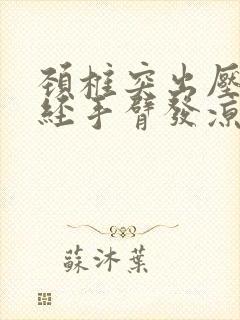 頚椎突出壓
經手臂發涼
蘇沐葉